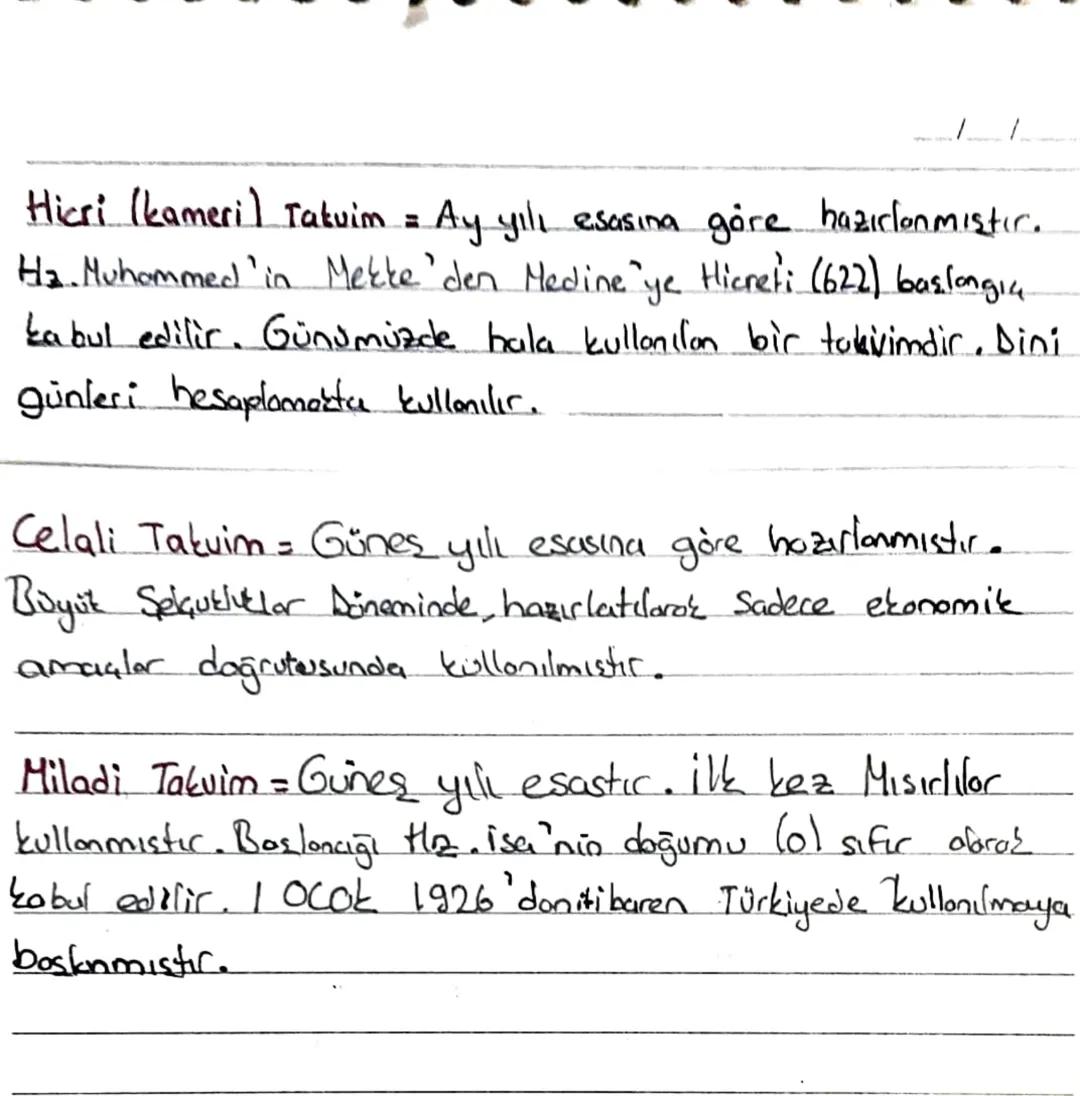 / /
Hicri (kameri) Takvim = Ay yılı esasına göre hazırlanmıştır.
Hz. Muhammed'in Mekke'den Medine'ye Hicreti (622) başlangıç
kabul edilir. Günümüzde hala kullanılan bir takivimdir. Dini
günleri hesaplamakta kullanılır.
Celali Takvim = Güneş yılı esasına göre hazırlanmıştır.
Büyük Selçukluklar Döneminde, hazırlatılarak sadece ekonomik
amaçlar doğrutusunda küllanılmıştır.
Miladi Takvim = Güneş yılı esastır. İlk kez Mısırlılar
kullanmıştır. Başlancığı Hz. isa'nin doğumu (0) sıfır olarak
kabul edilir. 1 Ocak 1926'danitibaren Türkiyede kullanılmaya
başknmıştır.